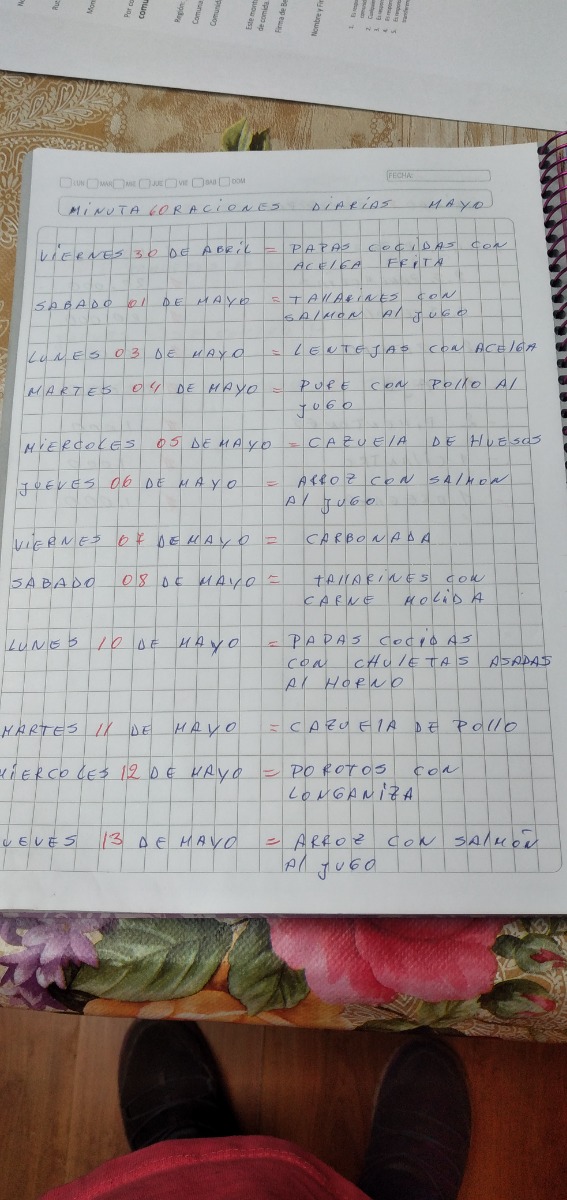 Por co
comu
Región:
Comuna
Comunid
Este mont
de comida
Firma de Be
Nombre y Fir
LUN MAR MIE JUE VIE SAB DOM
FECHA:
MINUTA 60RACIONES DIARIAS MAYO
VIERNES 30 DE ABRIL = PAPAS COCIDAS CON
ACELGA FRITA
SABADO 01 DE MAYO = TALLARINES CON
SALMON Al JUGO
LUNES 03 DE MAYO = LENTEJAS CON ACELGA
MARTES 04 DE MAYO = PURE CON POLLO Al
JUGO
MIERCOLES 05 DE MAYO = CAZUELA DE HUESOS
JUEVES 06 DE MAYO = ARROZ CON SALMON
Al JUGO
VIERNES 07 DE MAYO = CARBONADA
SABADO 08 DE MAYO = TALLARINES CON
CARNE MOLIDA
LUNES 10 DE MAYO = PAPAS COCIDAS
CON CHULETAS ASADAS
Al HORNO
MARTES 11 DE MAYO = CAZUELA DE POLLO
MIERCOLES 12 DE MAYO = POROTOS CON
LONGANIZA
UEVES 13 DE MAYO = ARROZ CON SALMÓN
Al JUGO